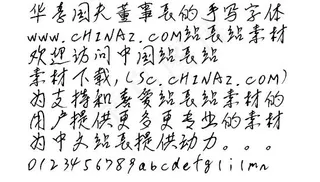 华春国夫董事长的手写字体
www.CHINAZ.COM站长站素材
欢迎访问中国站长站
素材下载,(SC.CHINAZ.COM)
为支持和喜爱站长站素材的
用户提供更多更专业的素材
为中文站长提供动力。。。
0123456789abcdefgliilmn